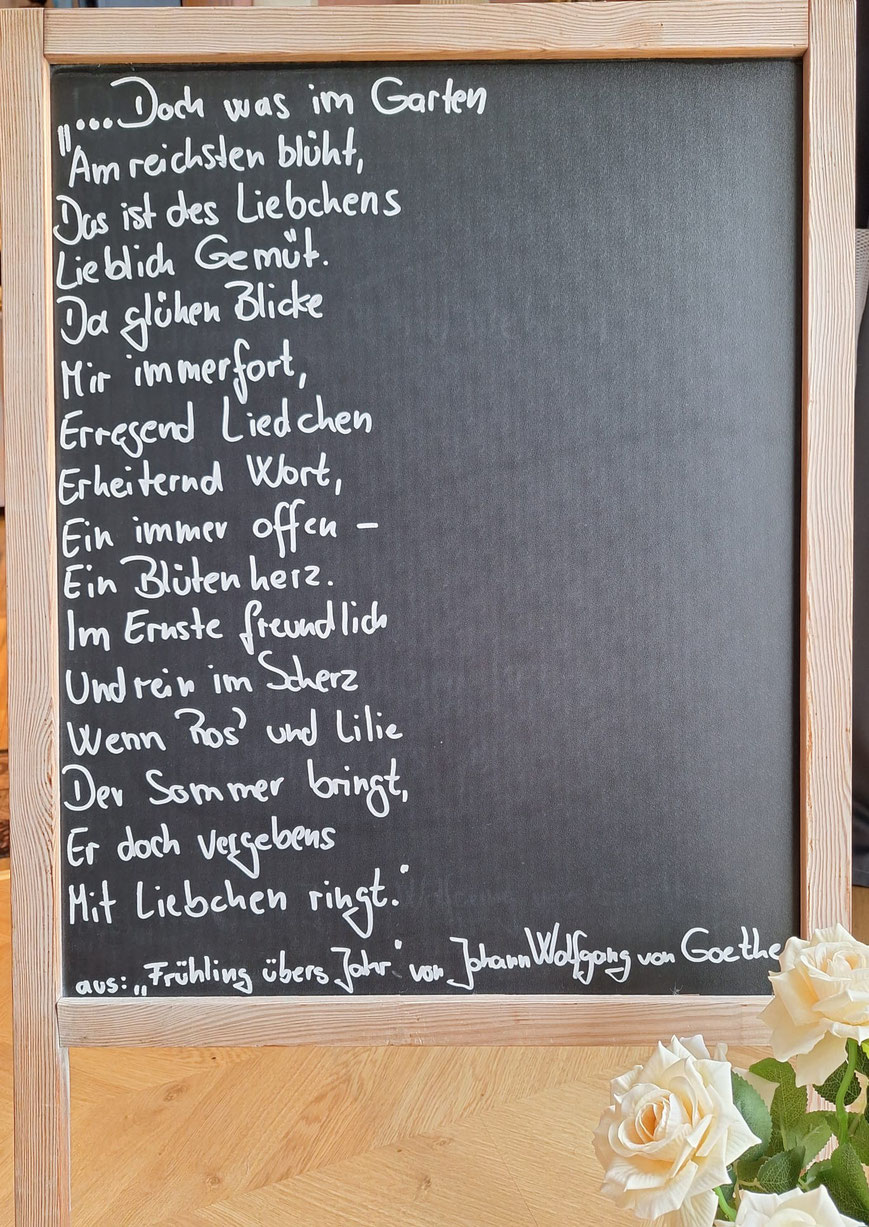 „...Doch was im Garten
Am reichsten blüht,
Das ist des Liebchens
Lieblich Gemüt.
Da glühen Blicke
Mir immerfort,
Erregend Liedchen
Erheiternd Wort,
Ein immer offen –
Ein Blütenherz.
Im Ernste freundlich
Und rein im Scherz
Wenn Ros' und Lilie
Der Sommer bringt,
Er doch vergebens
Mit Liebchen ringt."
aus: „Frühling übers Jahr" von Johann Wolfgang von Goethe